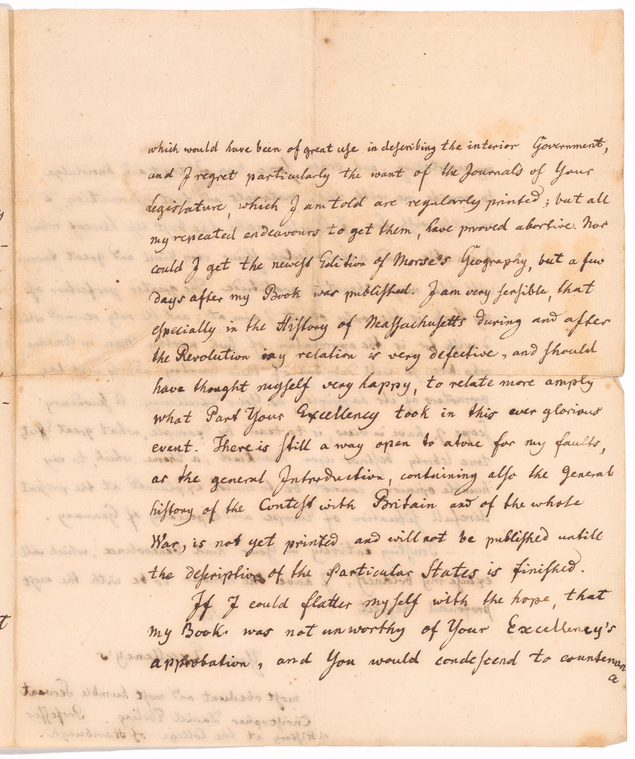 which would have been of great use in describing the interior Government,
and I regret particularly the want of the Journals of Your
Legislature, which I am told are regularly printed; but all
my repeated endeavours to get them, have proved abortive. Nor
could I get the newest Edition of Morse's Geography, but a few
Days after my Book was published. I am very sensible, that
especially in the History of Massachusetts during and after
the Revolution my relation is very defective, and should
have thought myself very happy, to relate more amply
what Part Your Excellency took in this ever glorious
event. There is still a way open to atone for my faults,
as the general Introduction, containing also the general
history of the Contest with Britain and of the whole
War, is not yet printed and will not be published untill
the description of the particular States is finished.
If I could flatter myself with the hope, that
my Book was not unworthy of Your Excellency's
approbation, and You would condescend to countenan
ce